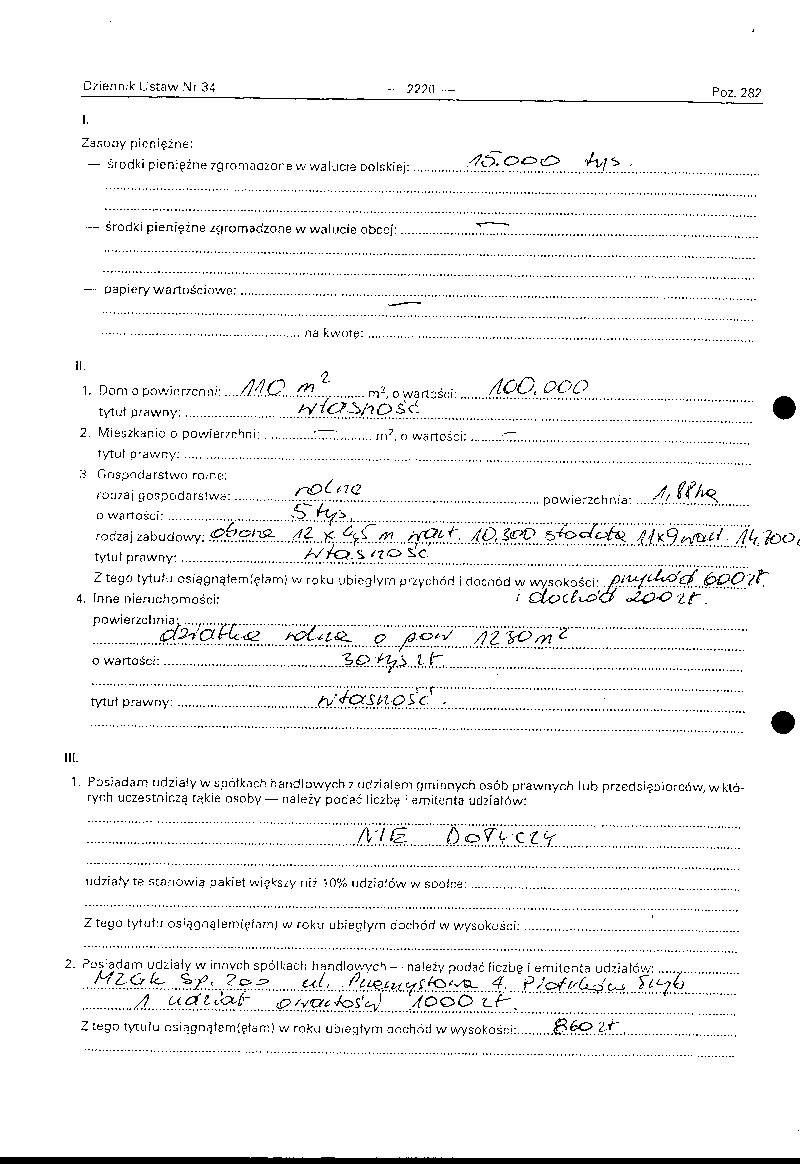 Dziennik Ustaw Nr 34 — 2220 — Poz. 282
I.
Zasoby pieniężne:
— środki pieniężne zgromadzone w walucie polskiej: 15.000 tys.
— środki pieniężne zgromadzone w walucie obcej: —
— papiery wartościowe:
—
na kwotę:
II.
1. Dom o powierzchni: 110 m² m², o wartości: 100.000
tytuł prawny: własność
2. Mieszkanie o powierzchni: — m², o wartości: —
tytuł prawny:
3. Gospodarstwo rolne:
rodzaj gospodarstwa: rolne powierzchnia: 1,88 ha
o wartości: 5 tys.
rodzaj zabudowy: obora 12 x 4,5 m wart. 10.300 stodoła 11x9 wart. 14.700
tytuł prawny: własność
Z tego tytułu osiągnąłem(ęłam) w roku ubiegłym przychód i dochód w wysokości: przychód 600 zł.
i dochód 200 zł.
4. Inne nieruchomości:
powierzchnia:
działka rolna o pow 1230 m²
o wartości: 30 tys zł
tytuł prawny: własność.
III.
1. Posiadam udziały w spółkach handlowych z udziałem gminnych osób prawnych lub przedsiębiorców, w któ-
rych uczestniczą takie osoby — należy podać liczbę i emitenta udziałów:
NIE DOTYCZY
udziały te stanowią pakiet większy niż 10% udziałów w spółce:
Z tego tytułu osiągnąłem(ęłam) w roku ubiegłym dochód w wysokości:
2. Posiadam udziały w innych spółkach handlowych — należy podać liczbę i emitenta udziałów:
MZGK Sp. zoo ul. Przemysłowa 4. Piotrków Tryb
1 udział o wartości 1000 zł.
Z tego tytułu osiągnąłem(ęłam) w roku ubiegłym dochód w wysokości: 860 zł.